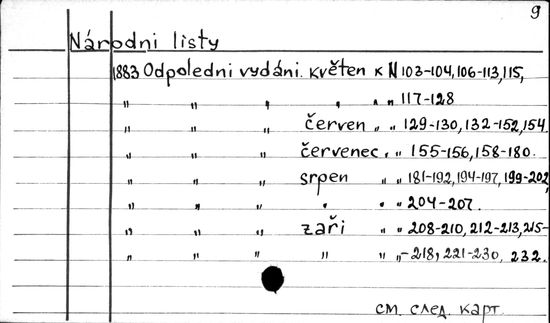 9
Národni listy
1883 Odpoledni vydáni. květen к N 103-104, 106-113, 115,
" " " " " " 117-128
" " " červen " " 129-130, 132-152, 154
" " " červenec " " 155-156, 158-180.
" " " srpen " " 181-192, 194-197, 199-202,
" " " " " " 204-207.
" " " zaři " " 208-210, 212-213, 215-
" " " " " " -218, 221-230, 232.
см. след. карт.